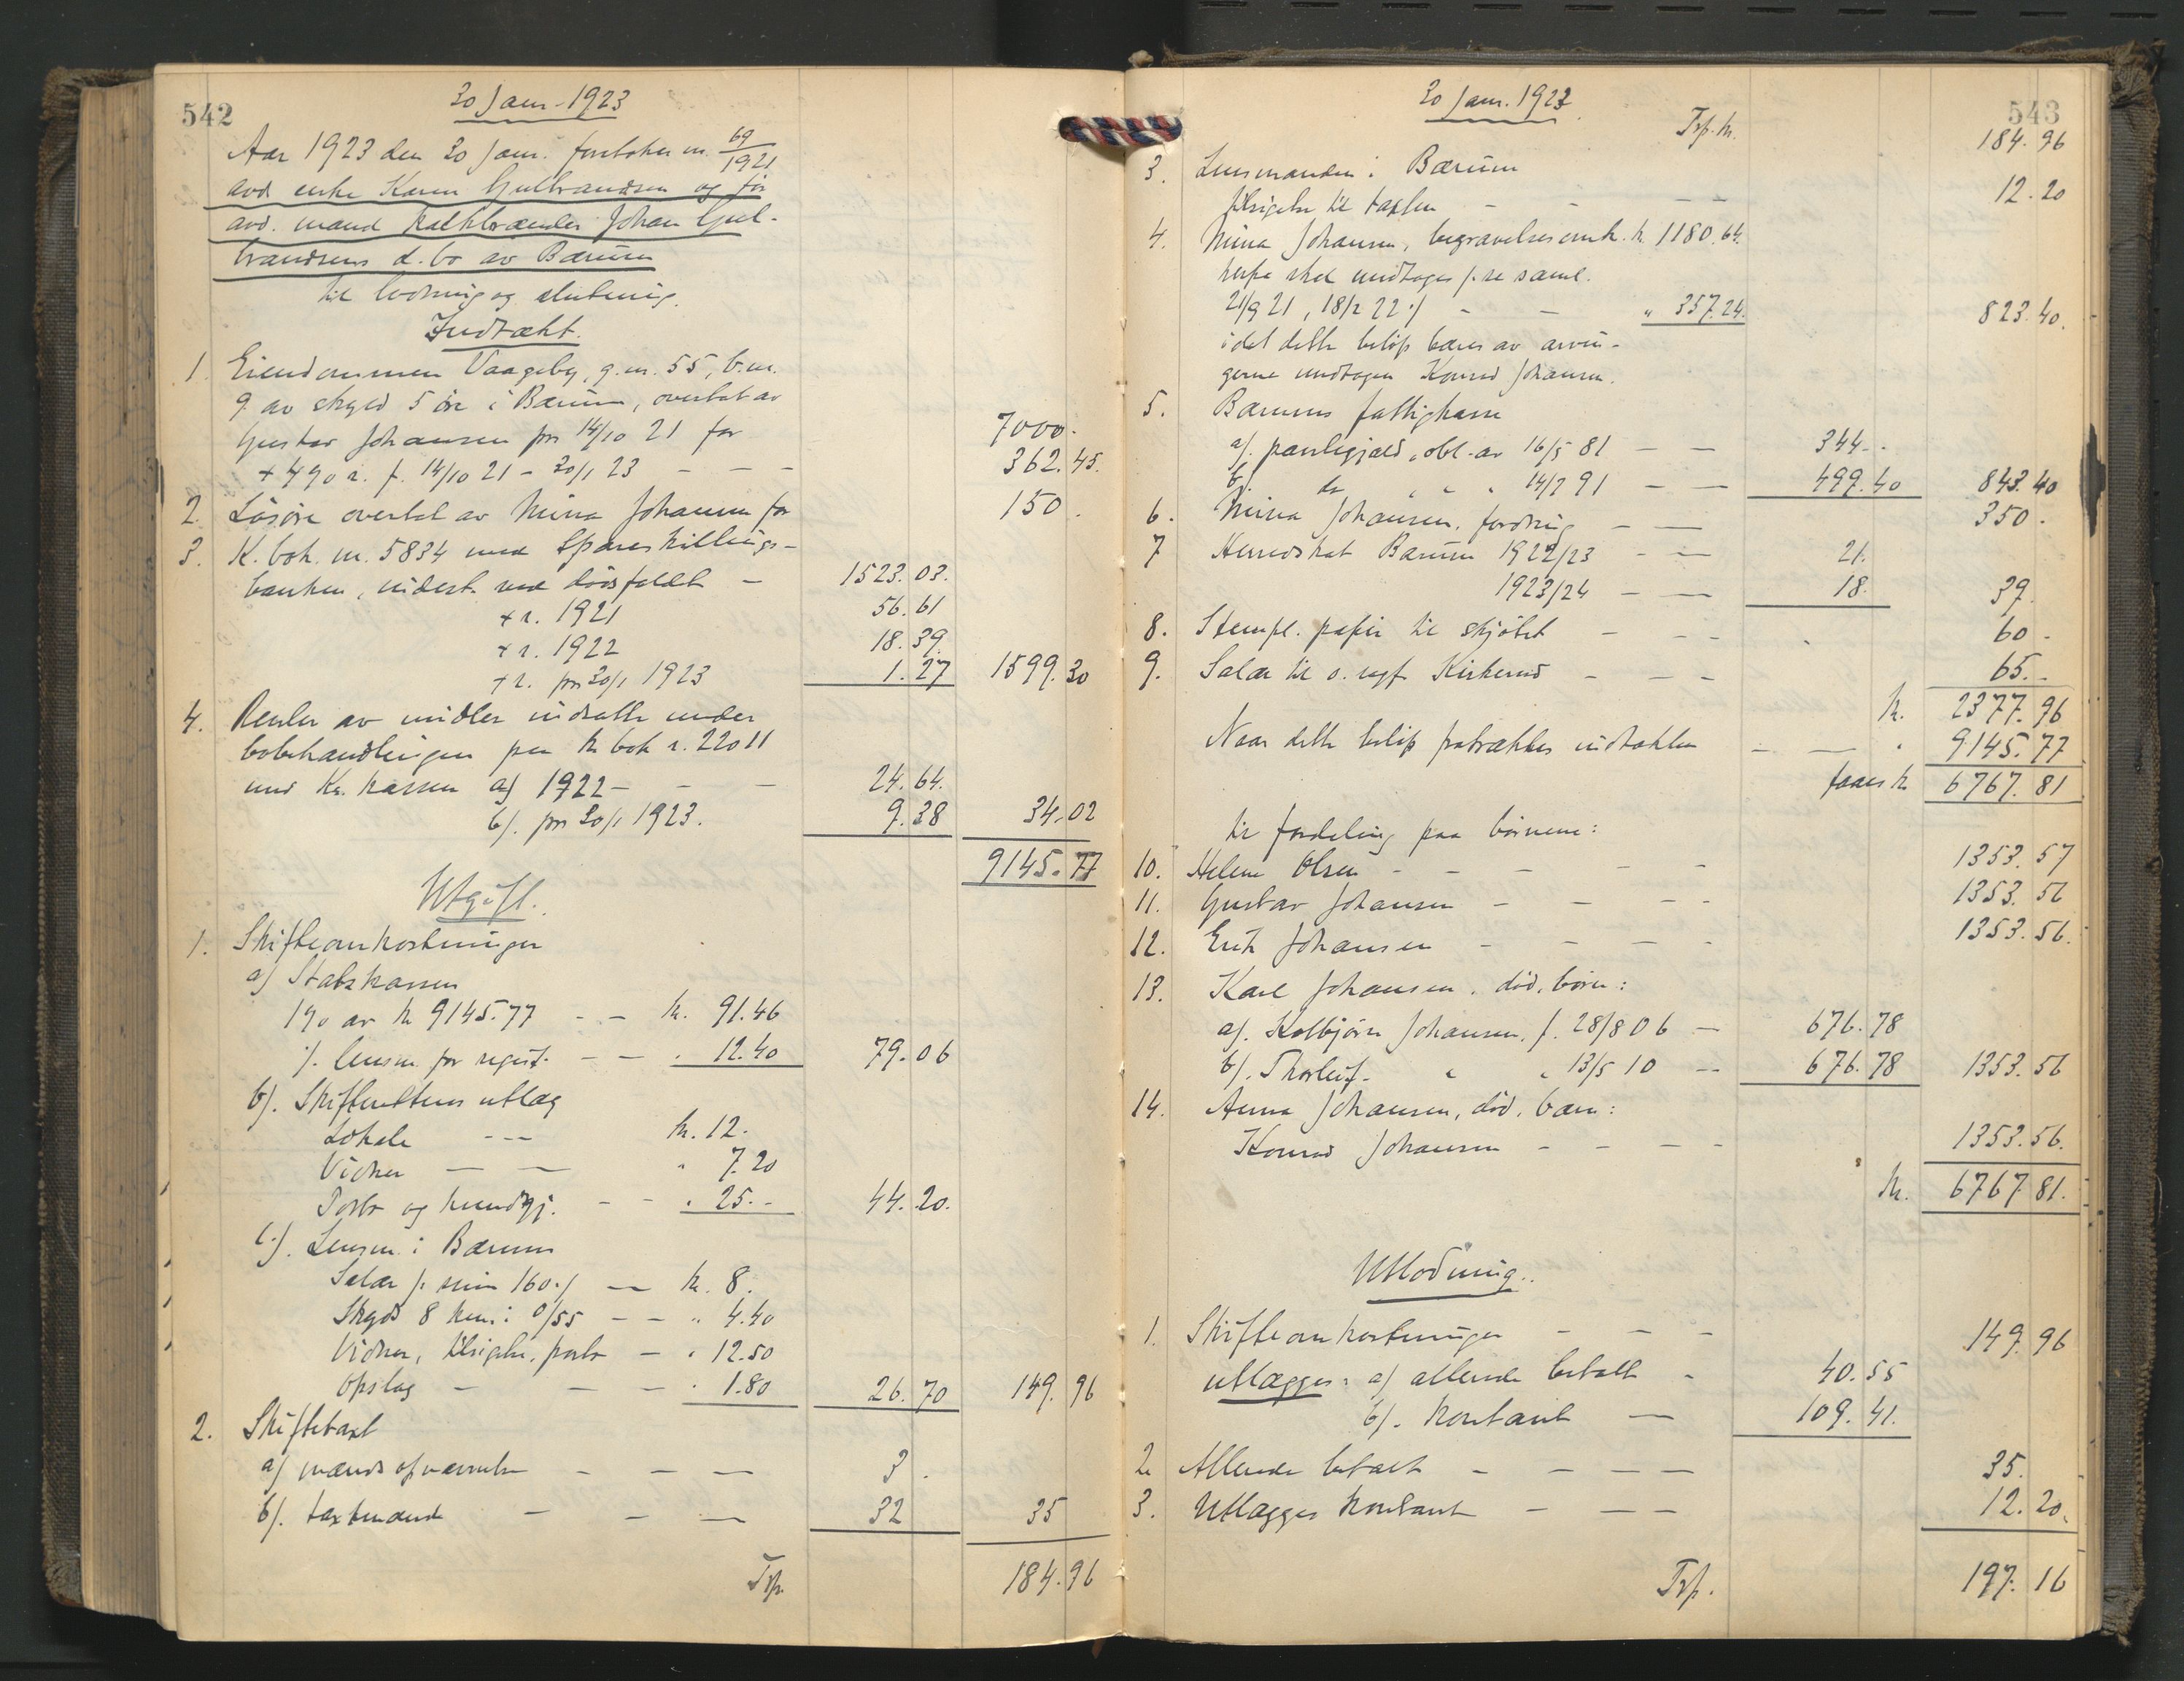 542
30 Jan. 1923
Aar 1923 den 30 Jan. foretokes nr. 69/1921
avd. enke Karen Gulbrandsen og før
avd. mand kalkbrænder Johan Gul-
brandsens d. bo av Bærum
til lodning og slutning.
Indtækt.
1. Eiendommen Vaageby, g.nr. 55, b.nr.
9 av skyld 5 øre i Bærum, overtat av
Gustav Johansen pr 14/10 21 for 7000.
+ 4% r. f. 14/10 21 - 30/1 23 - - - 362.45.
2. Løsøre overtat av Mina Johansen for 150.
3. K. bok nr. 5834 med Spareskillings-
banken, indest. ved dødsfaldet - 1523.03.
+ r. 1921 56.61
+ r. 1922 18.39.
+ r. pr 30/1 1923 1.27 1599.30
4. Renter av midler indsatte under
bobehandlingen paa k bok n. 22011
med Kr. kassen a) 1922 - - - 24.64.
b). pr 30/1 1923. 9.38 34.02
9145.77
Utgift.
1. Skifteomkostninger
a) Statskassen
1% av kr 9145.77 - - kr. 91.46
÷ lensm. for regist. - - " 12.40 79.06
b). Skifterettens utlæg
Lokale - - - kr. 12.
Vidner - - " 7.20
Porto og kundgj. - - " 25.- 44.20.
c). Lensm. i Bærum
Salær /: min 160 :/ - kr. 8.
Skyds 8 km. i 0/55 - - " 4.40
Vidner, tilsigelse, porto - " 12.50
Opslag - - - " 1.80 26.70 149.96
2. Skiftetaxt
a) mænds opnævnelse - - - 3.
b). taxtmænd - - - 32 35
Trp. 184.96
543
30 Jan. 1923.
Trp. kr. 184.96
3. Lensmanden i Bærum
tilsigelse til taxten - - - - 12.20
4. Mina Johansen, begravelsesomk. kr. 1180.64.
herfra skal undtages /: se saml.
21/9 21, 18/2 22 :/ - - " 357.24. 823.40.
idet dette beløp bæres av arvin-
gerne undtagen Konrad Johansen.
5. Bærums fattigkasse
a). pantegjæld, obl. av 16/5 81 - - 344.-
b). do " " " 14/7 91 - - 499.40 843.40
6. Mina Johansen, fordring - - 350.
7 Herredskat Bærum 1922/23 - - 21.
1923/24 - - 18. 39.
8. Stempl. papir til skjøtet - - - 60.-
9. Salær til o. sagf. Kirkerud - - - 65.-
kr. 2377.96
Naar dette beløp fratrækkes indtækten - - " 9145.77
faaes kr 6767.81
til fordeling paa børnene:
10. Helene Olsen - - - - - 1353.57
11. Gustav Johansen - - - - 1353.56
12. Erik Johansen - - - - 1353.56.
13. Karl Johansen, død, børn:
a). Kolbjørn Johansen, f. 28/8 06 - 676.78
b). Thorleif " " 13/5 10 - 676.78 1353.56
14. Anna Johansen, død, barn:
Konrad Johansen - - - - 1353.56.
kr. 6767.81.
Utlodning.
1. Skifteomkostninger - - - 149.96
utlægges: a) allerede betalt - 40.55
b). kontant - 109.41.
2. Allerede betalt - - - - 35.
3. Utlægges kontant - - - 12.20.
Trp. 197.16